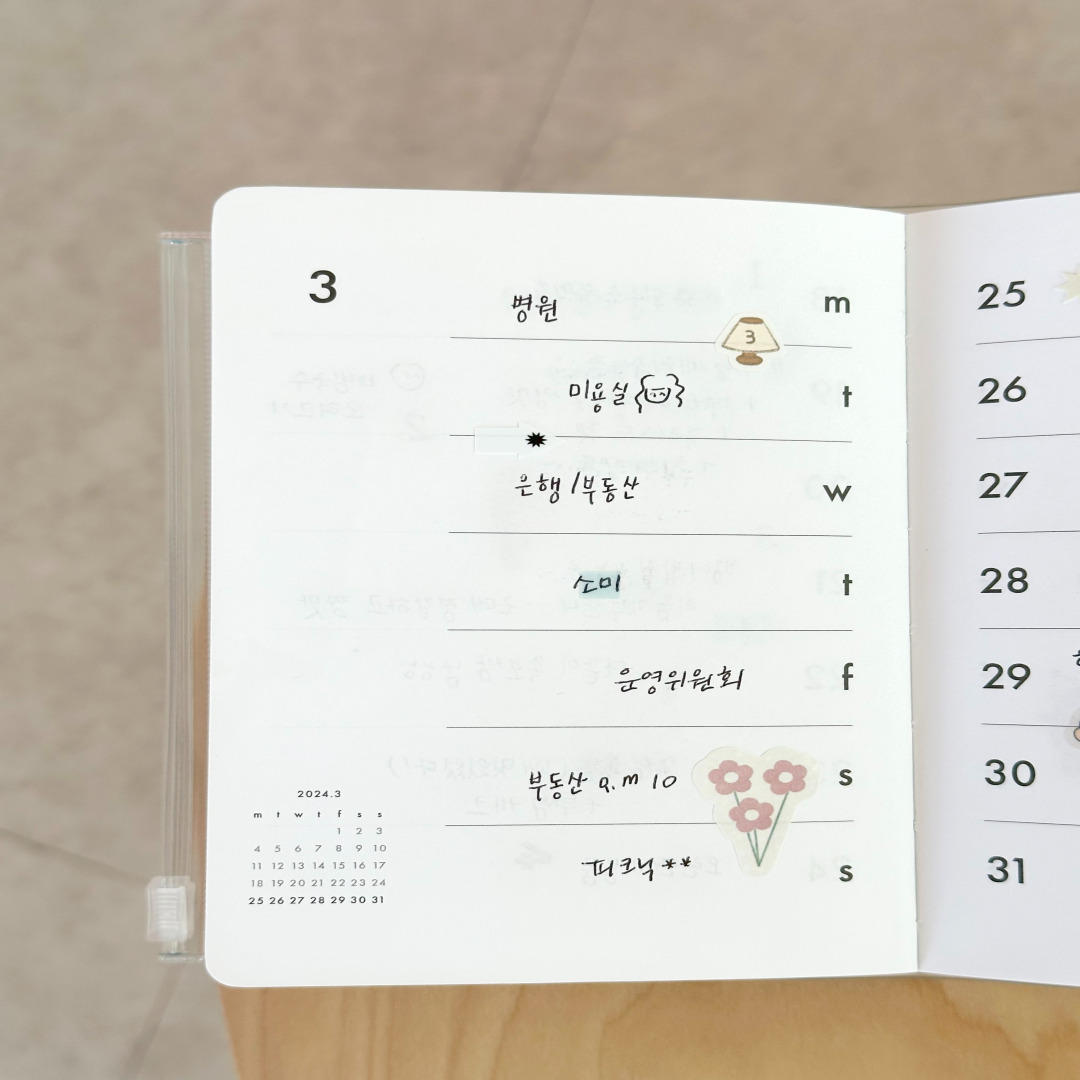 3
병원 m 25
3
미용실 t 26
은행/부동산 w 27
소미 t 28
운영위원회 f 29
부동산 a.m 10 s 30
피크닉** s 31
2024.3
m t w t f s s
1 2 3
4 5 6 7 8 9 10
11 12 13 14 15 16 17
18 19 20 21 22 23 24
25 26 27 28 29 30 31